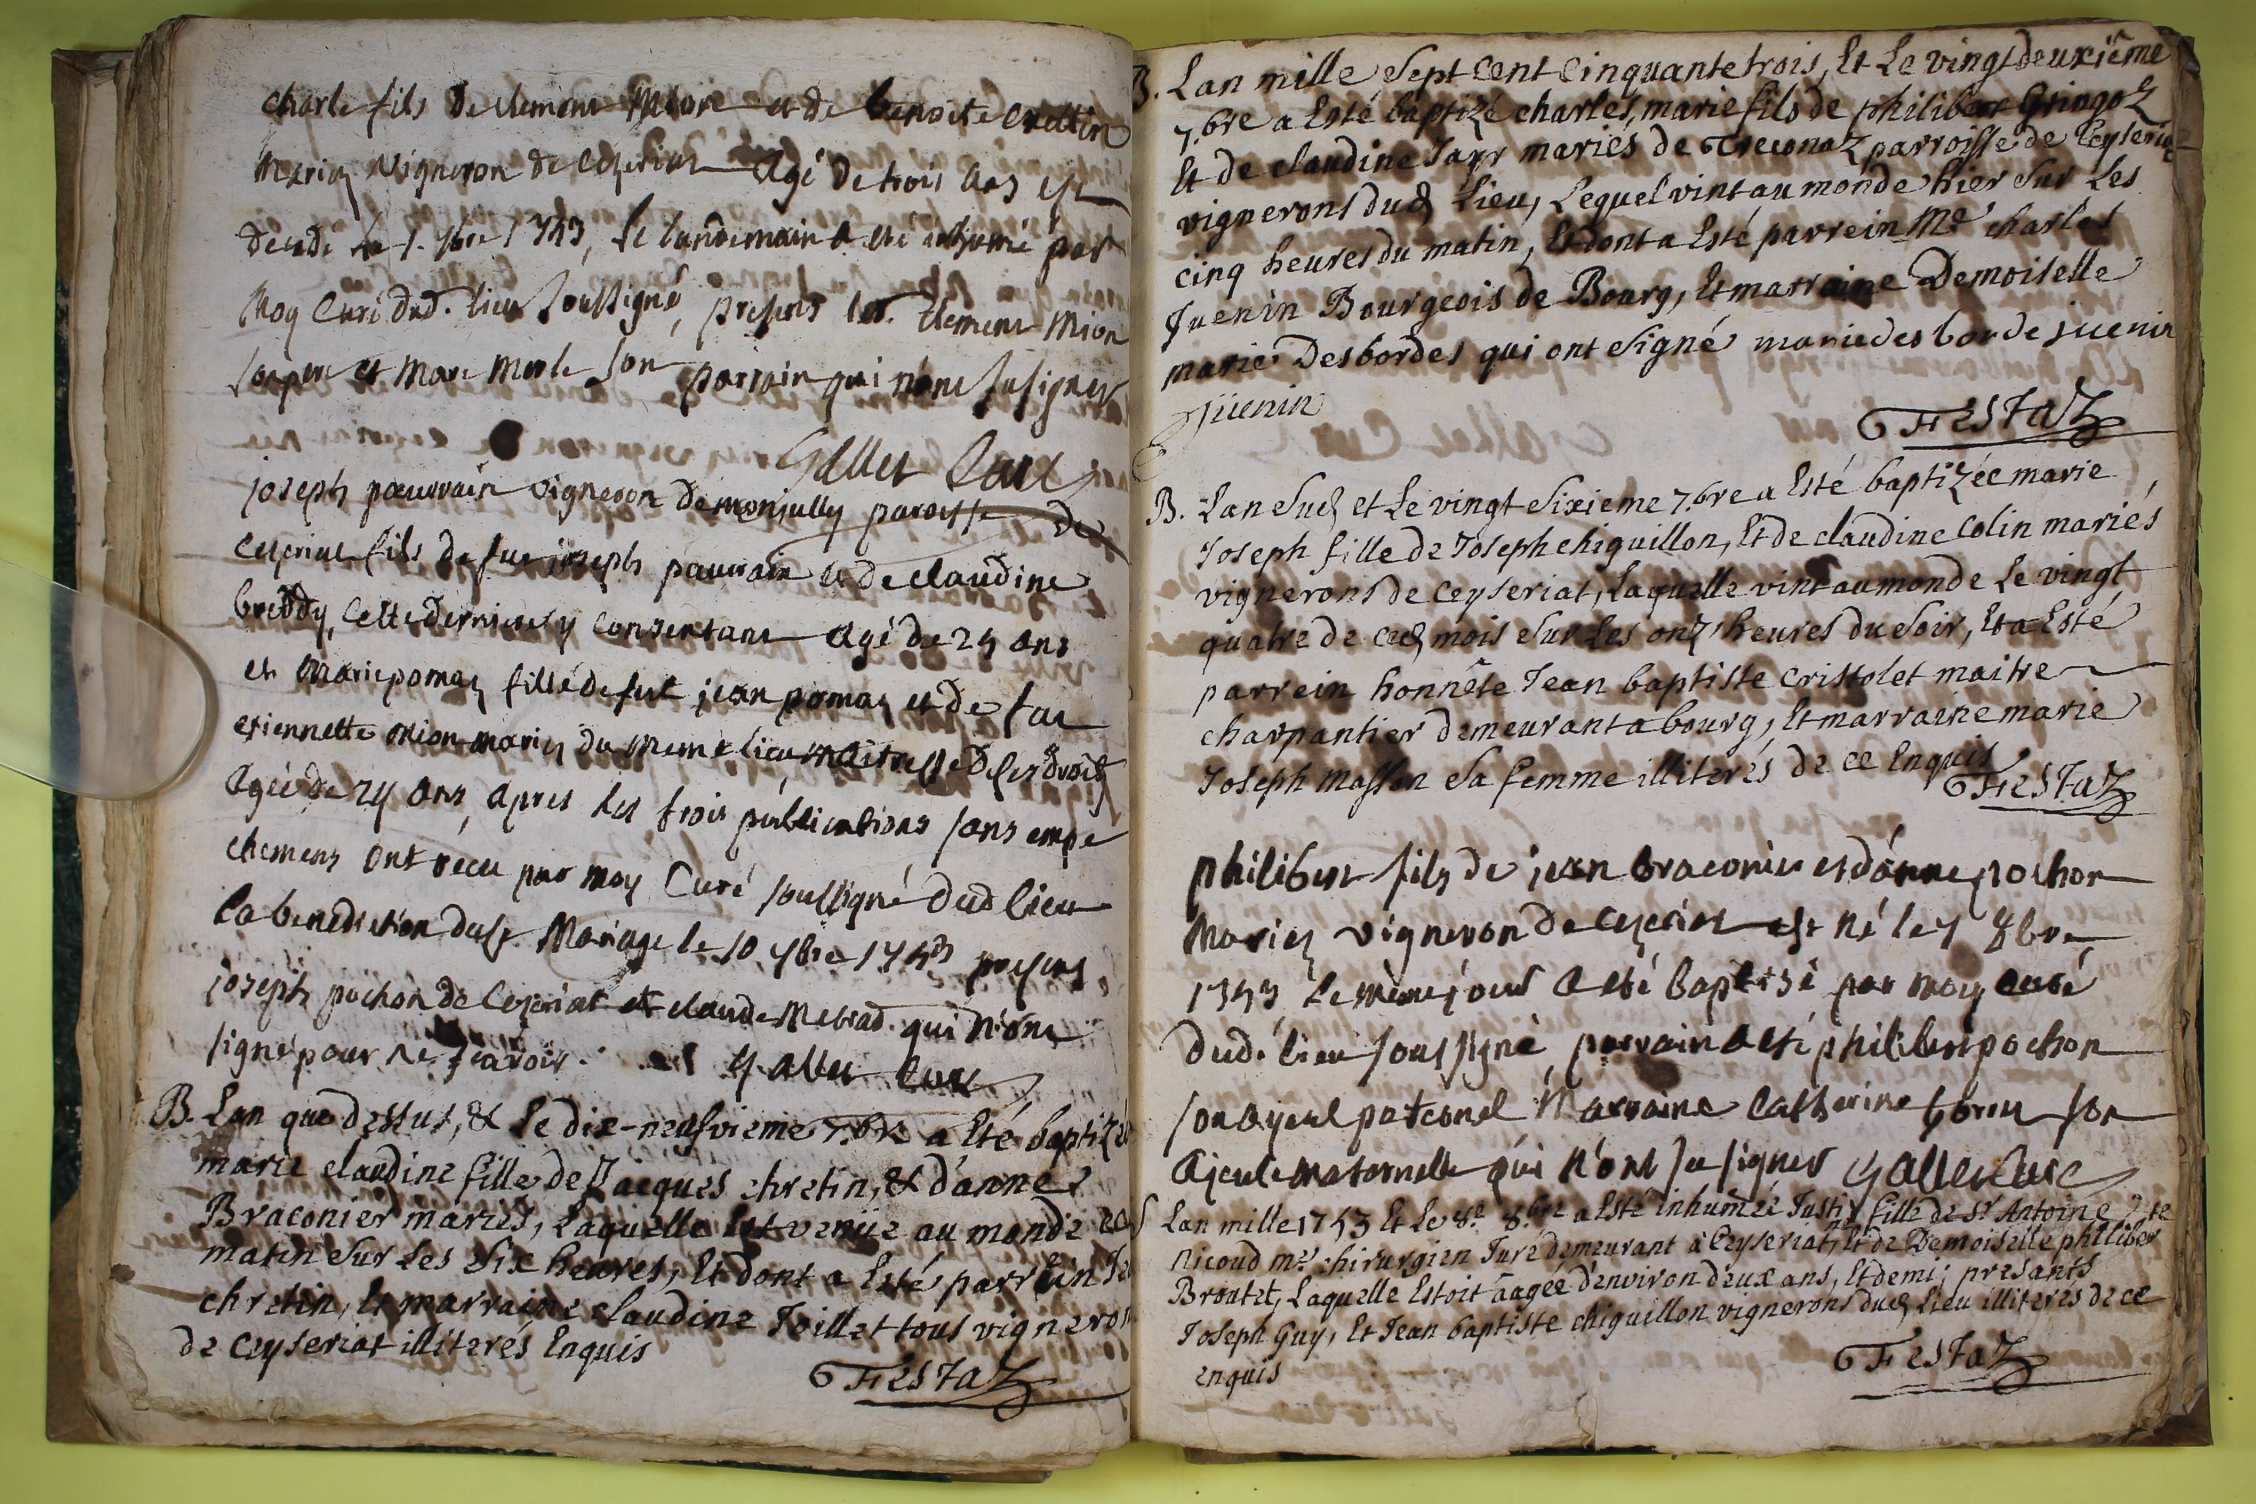 charle fils de clement Mion et de benoite crettin
Mariez Vigneron de ceyseriat Agé de trois ans est
decedé le 1. 7bre 1753, le landemain a eté inhumé par
Moy Curé dud. lieu soussigné, presens led. Clement Mion
son pere et Marc Merle son parrain qui n'ont su signer
Gallet Curé
joseph pauvrain vigneron de monjully paroisse de
Ceyseriat fils de feu joseph pauvrain et de claudine
breddy, cette derniere y consentant agé de 25 ans
et Marie pomaz fille de feu jean pomaz et de feu
etiennette Mion mariez du meme lieu maitresse de ses droits
Agée de 24 ans, apres les trois publications sans empe
chemens ont recu par moy Curé soussigné dud lieu
la benediction du st. Mariage le 10 7bre 1753 presens
joseph pochon de Ceyseriat et claude Mebrad qui n'ont
signé pour ne sçavoir. Gallet Curé
B. Lan que dessus, & Le dix-neufvieme 7.bre a Eté baptizée
marie claudine fille de Jacques chretin, & d'anne
Braconier mariés, Laquelle est venüe au monde ce
matin sur Les six heures, Et dont a Esté parrein
chretin, Et marraine claudine Joillet tous vignerons
de Ceyseriat illiterés Enquis
Festaz
B. Lan mille sept cent cinquante trois, Et Le vingt deuxiême
7.bre a Esté baptizé charles, marie fils de philibert Gringoz
Et de claudine Jayr mariés de Treconaz parroisse de Ceyseriat
vignerons dud Lieu, Lequel vint au monde hier sur Les
cinq heures du matin, Et dont a Esté parrein Me charles
Juenin Bourgeois de Bourg, Et marraine Demoiselle
marie Desbordes qui ont signé marie des borde juenin
jüenin
Festaz
B. Lan sud et Le vingt sixieme 7.bre a Esté baptizée marie
Joseph fille de Joseph chiguillon, Et de claudine Colin mariés
vignerons de Ceyseriat, Laquelle vint au monde Le vingt
quatre de ced mois sur Les onz' heures du soir, Et a Esté
parrein honnête Jean baptiste Cristolet maitre
charpantier demeurant a bourg, Et marraine marie
Joseph Masson sa femme illiterés de ce Enquis
Festaz
philibert fils de jean braconier et d'anne pochon
Mariez vigneron de Ceyseriat est né le 7 8bre
1753 le même jour a eté baptisé par moy curé
dud. lieu soussigné, parrain a eté philibert pochon
son ayeul paternel Marraine Catherine son
Ajeule maternelle qui n'ont su signer Gallet Curé
S Lan mille 1753 Et Le 8e 8bre a Esté inhumée Justine fille de Sr Antoine
Nicoud me chirurgien Juré demeurant à Ceyseriat, Et de Demoiselle philiberte
Broutet, Laquelle Estoit aagée d'environ deux ans, Et demi; presants
Joseph Guy, Et Jean baptiste chiguillon vignerons dud Lieu illiteres de ce
enquis
Festaz